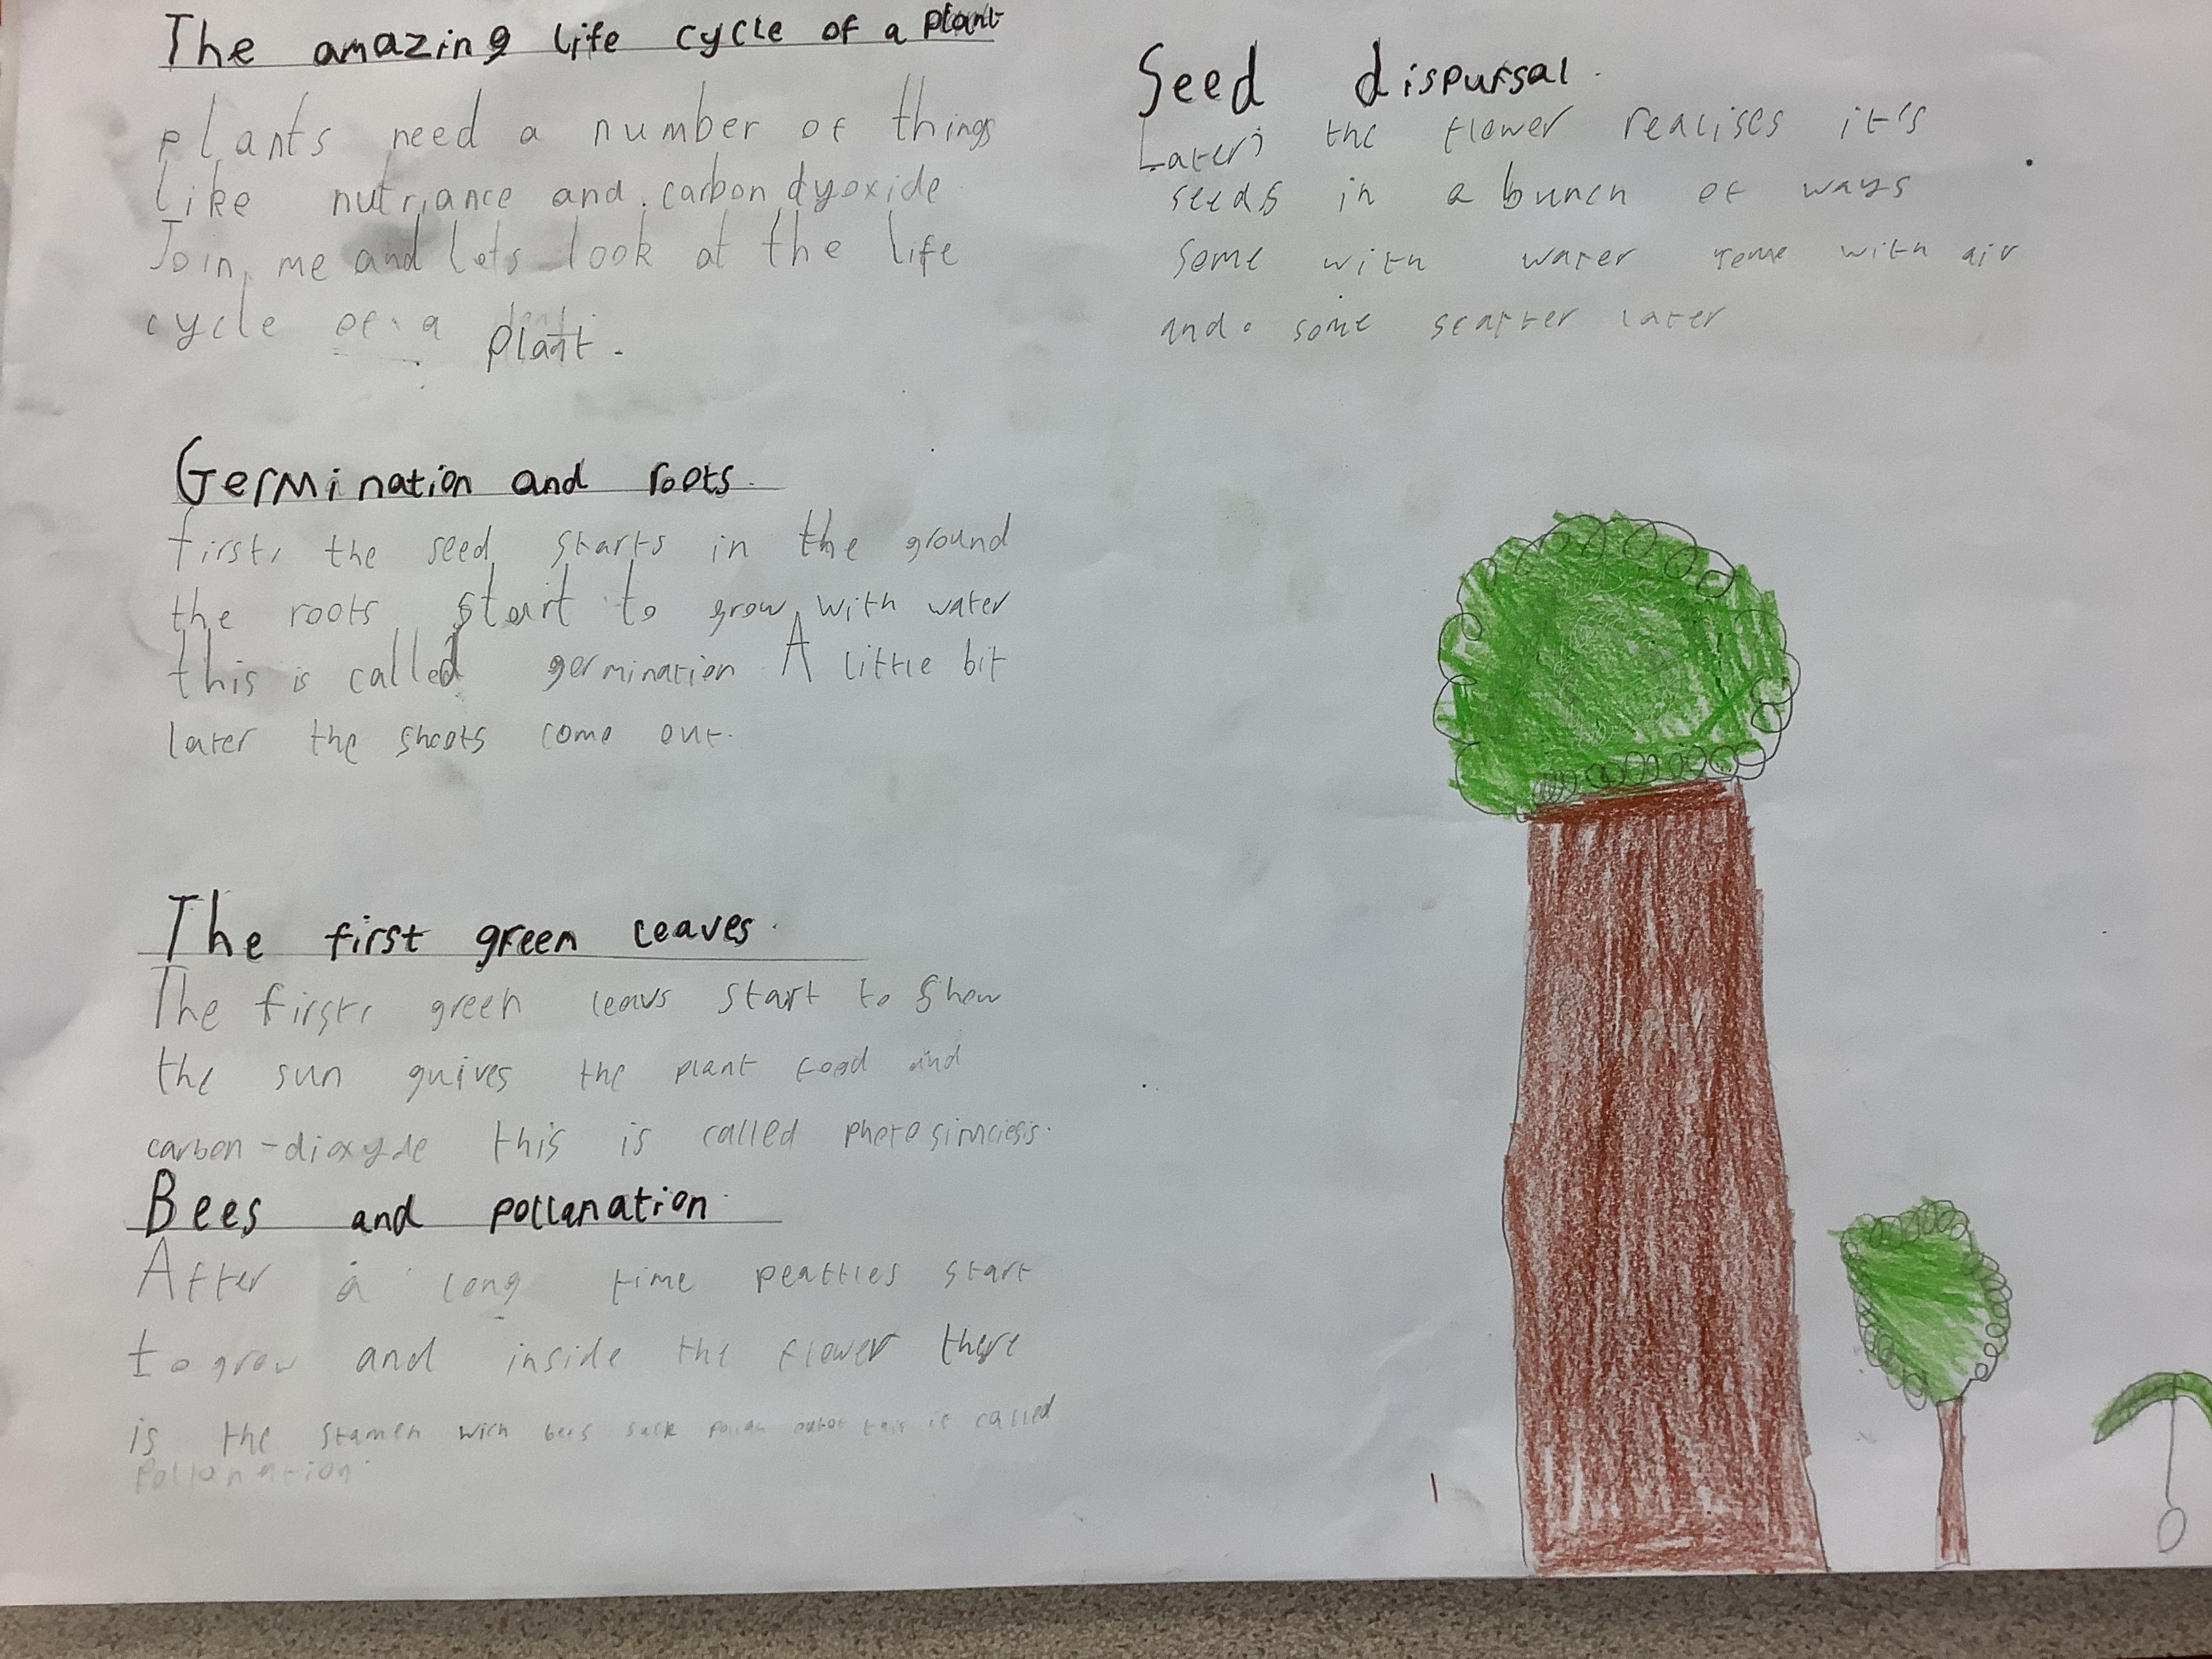 The amazing life cycle of a plant
plants need a number of things
like nutriance and carbon dyoxide
Join me and lets look at the life
cycle of a plant.
Germination and roots.
first, the seed starts in the ground
the roots start to grow with water
this is called germination A little bit
later the shoots come out.
The first green leaves.
The first, green leavs start to show
the sun guives the plant food and
carbon-dioxyde this is called
Bees and pollanation.
After a long time peattles start
to grow and inside the flower there
is the stamen wich bees suck this is called
pollanation.
Seed dispursal.
Later, the flower realises it's
seeds in a bunch of ways
some with water some with air
and some scatter later